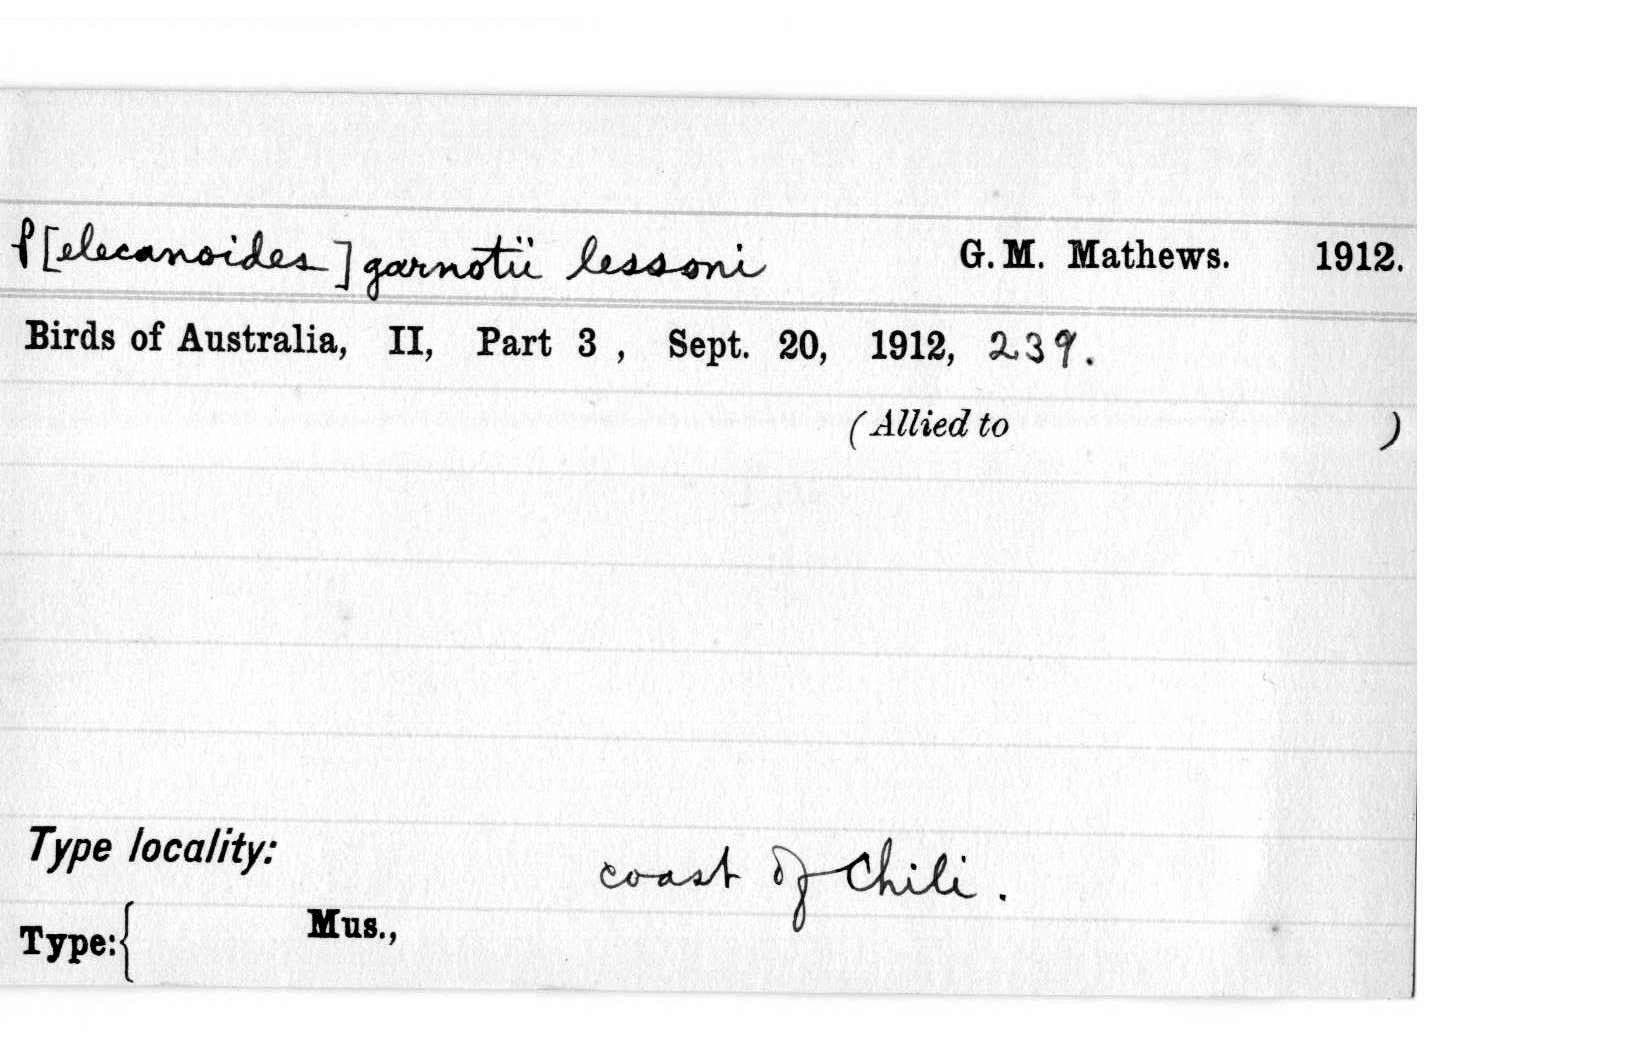 P[elecanoides] garnotii lessoni G. M. Mathews. 1912.
Birds of Australia, II, Part 3 , Sept. 20, 1912, 239.
(Allied to )
Type locality: coast of Chili.
Type:{ Mus.,